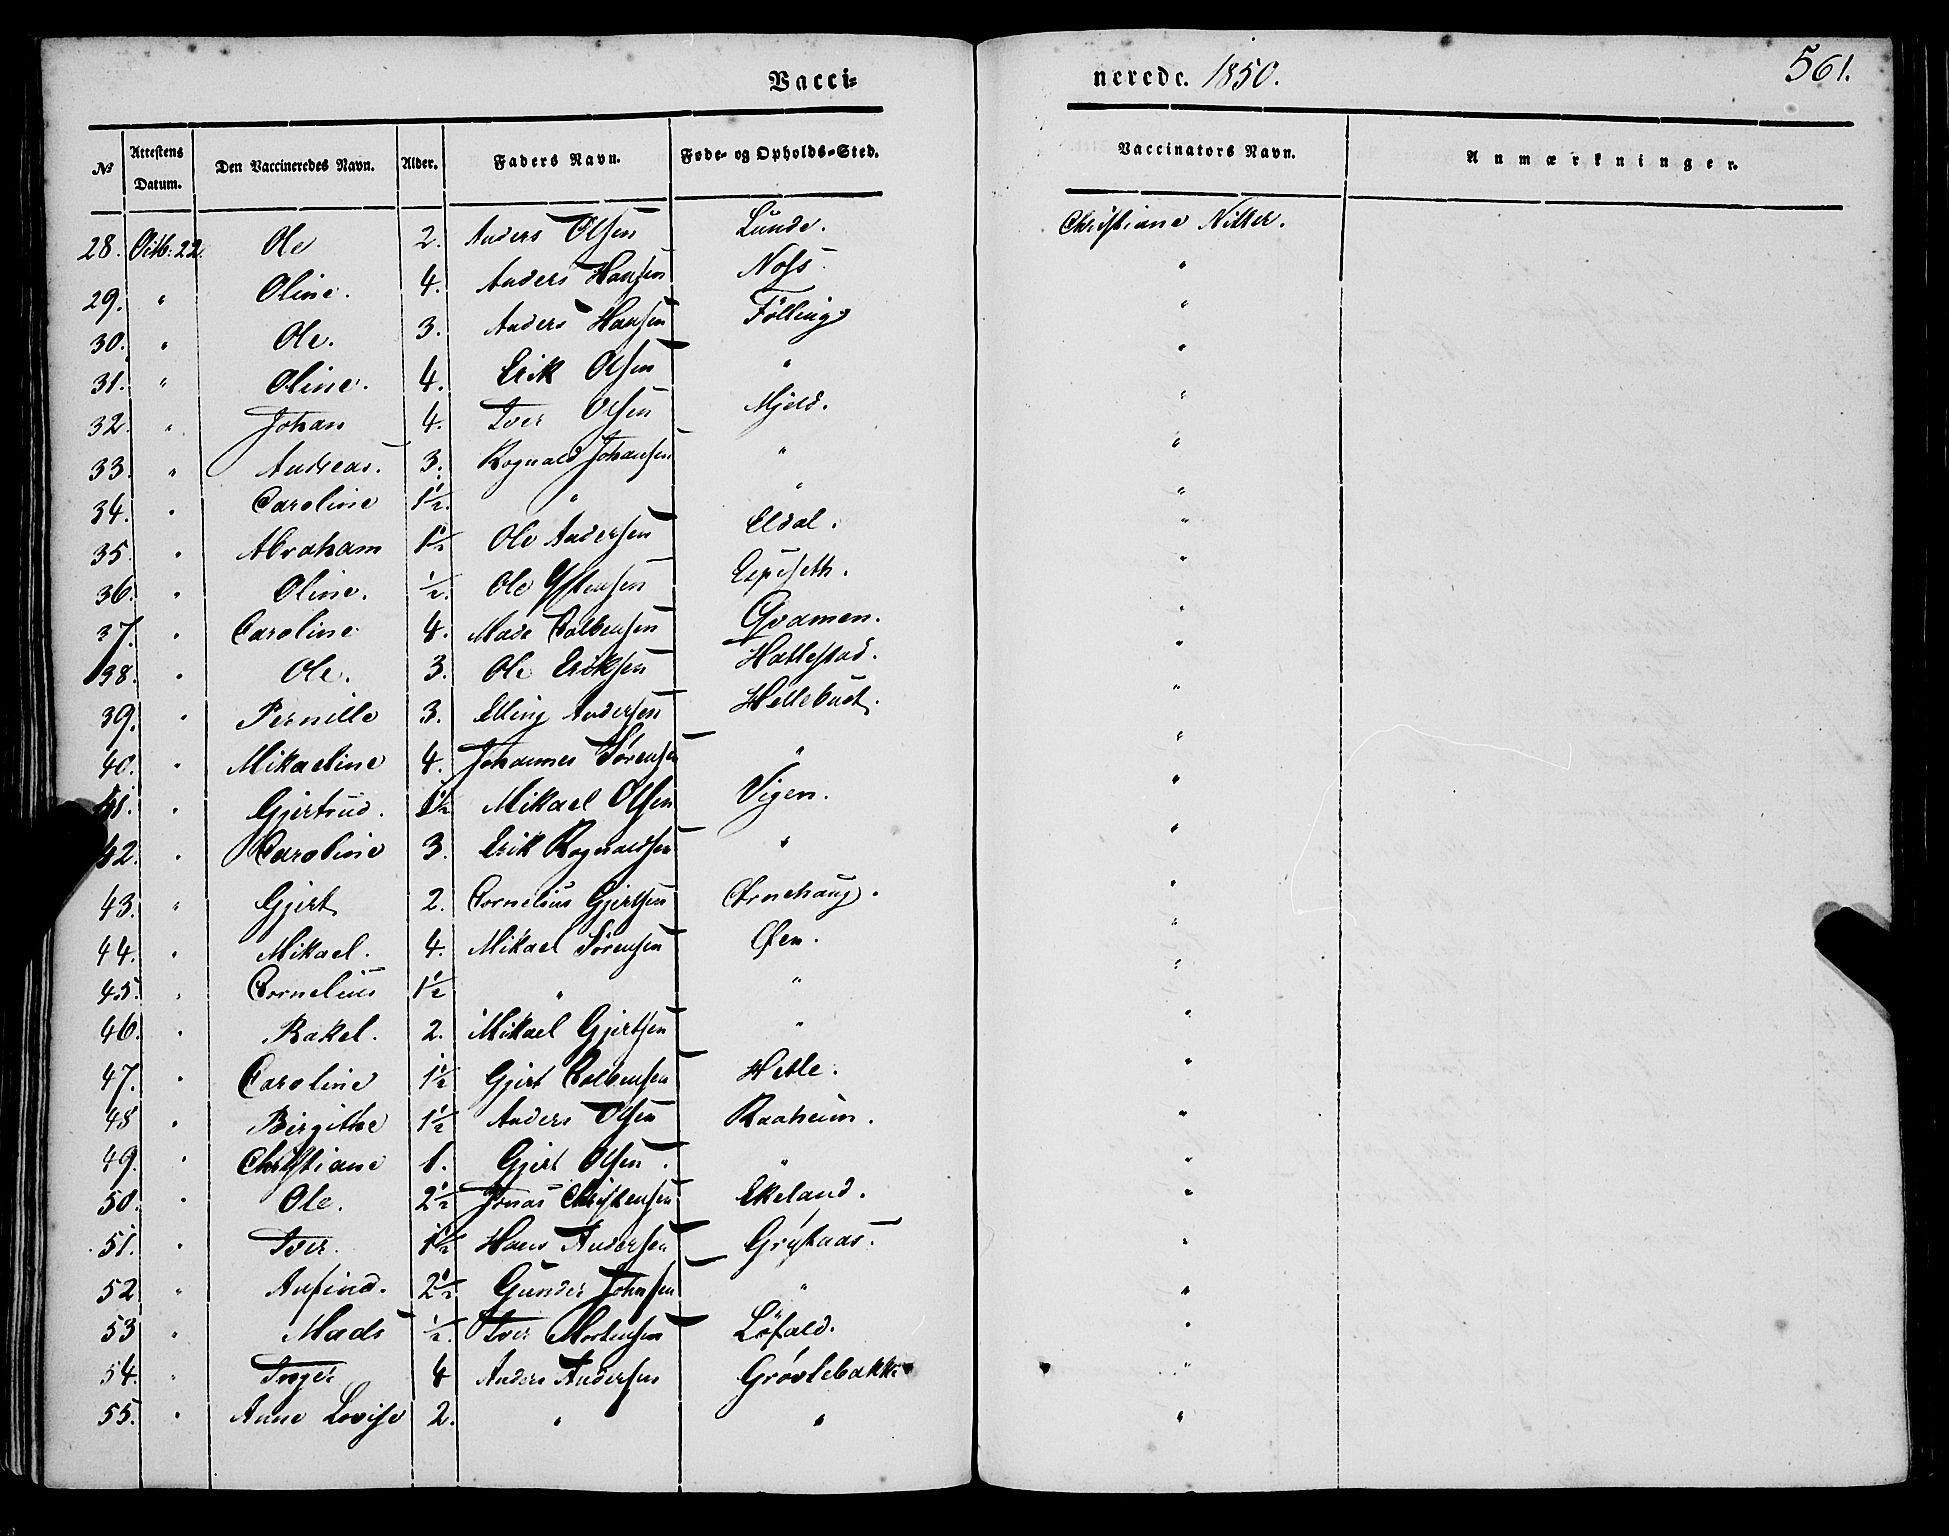 Vacci- nerede. 1850. 561.
No Attestens Datum. Den Vaccineredes Navn. Alder. Faders Navn. Føde- og Opholds-Sted. Vaccinators Navn. Anmærkninger.
28. Octb: 22. Ole 2. Anders Olsen Lunde. Christiane Nitter.
29. " Oline. 4. Anders Hansen Noss "
30. " Ole. 3. Anders Hansen Fölling "
31. " Oline. 4. Erik Olsen " "
32. " Johan 4. Iver Olsen Mjeld. "
33. " Andreas. 3. Rognald Johansen " "
34. " Caroline 1½. " " "
35. " Abraham 1½ Ole Andersen Eldal. "
36. " Oline. ½. Ole Ystensen Espeseth. "
37. " Caroline 4. Mads Colbensen Qvamen. "
38. " Ole. 3. Ole Eriksen Hatlestad. "
39. " Pernille 3. Elling Andersen Hellebust. "
40. " Mikaeline 4. Johannes Sörensen " "
41. " Gjertrud. 1½ Mikael Olsen Vigen. "
42. " Caroline 3. Erik Rognaldsen " "
43. " Gjert 2. Cornelius Gjertsen Ornehaug. "
44. " Mikael. 4. Mikael Sörensen Øen. "
45. " Cornelius 1½ " " "
46. " Rakel. 2. Mikael Gjertsen " "
47. " Caroline 1½ Gjert Colbensen Hetle. "
48 " Birgithe 1½ Anders Olsen Raaheim. "
49. " Christiane 1. Gjert Olsen. " "
50. " Ole. 2½ Jonas Christensen Ekeland. "
51. " Iver. 1½ Hans Andersen Grytaas. "
52 " Anfind. 2½ Gunder Johnsen " "
53 " Mads ½. Iver Mortensen Löfald. "
54. " Inger 4 Anders Andersen Grövlebakke "
55. " Anne Lovise 2. " " "